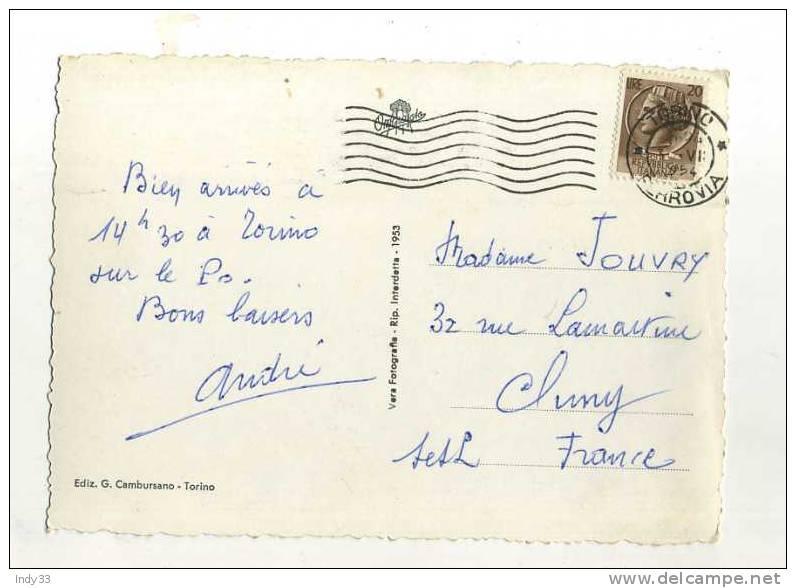 Bien arrivés à
14h30 à Torino
sur le Po.
Bons baisers
André
Ediz. G. Cambursano - Torino
Vera Fotografia - Rip. Interdetta - 1953
LIRE 20
TORINO
VII
1954
FERROVIA
Madame JOUVRY
32 rue Lamartine
Cluny
SetL France
Indy33
http://www.delcampe.net